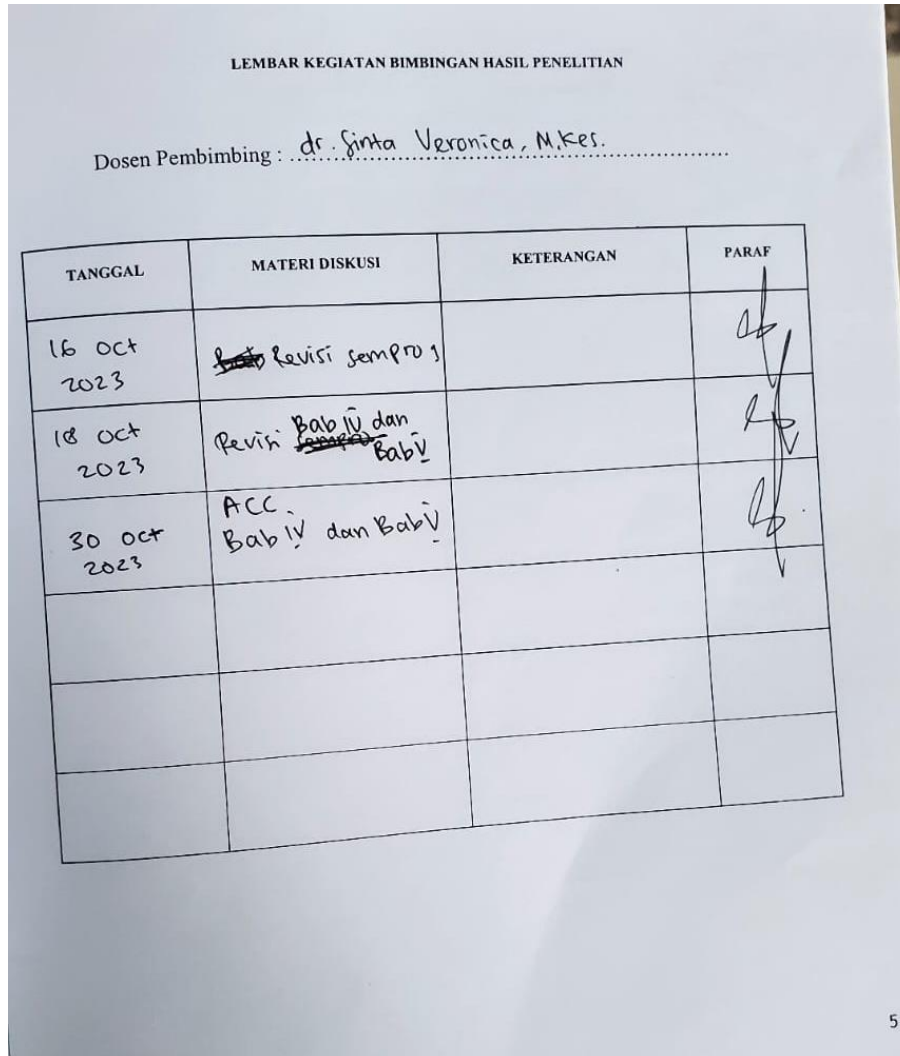 LEMBAR KEGIATAN BIMBINGAN HASIL PENELITIAN
Dosen Pembimbing : dr. Sinta Veronica, M.Kes.
TANGGAL MATERI DISKUSI KETERANGAN PARAF
16 Oct
2023
Revisi sempro 1
18 Oct
2023
Revisi Bab IV dan
Bab V
30 Oct
2023
ACC.
Bab IV dan Bab V
5